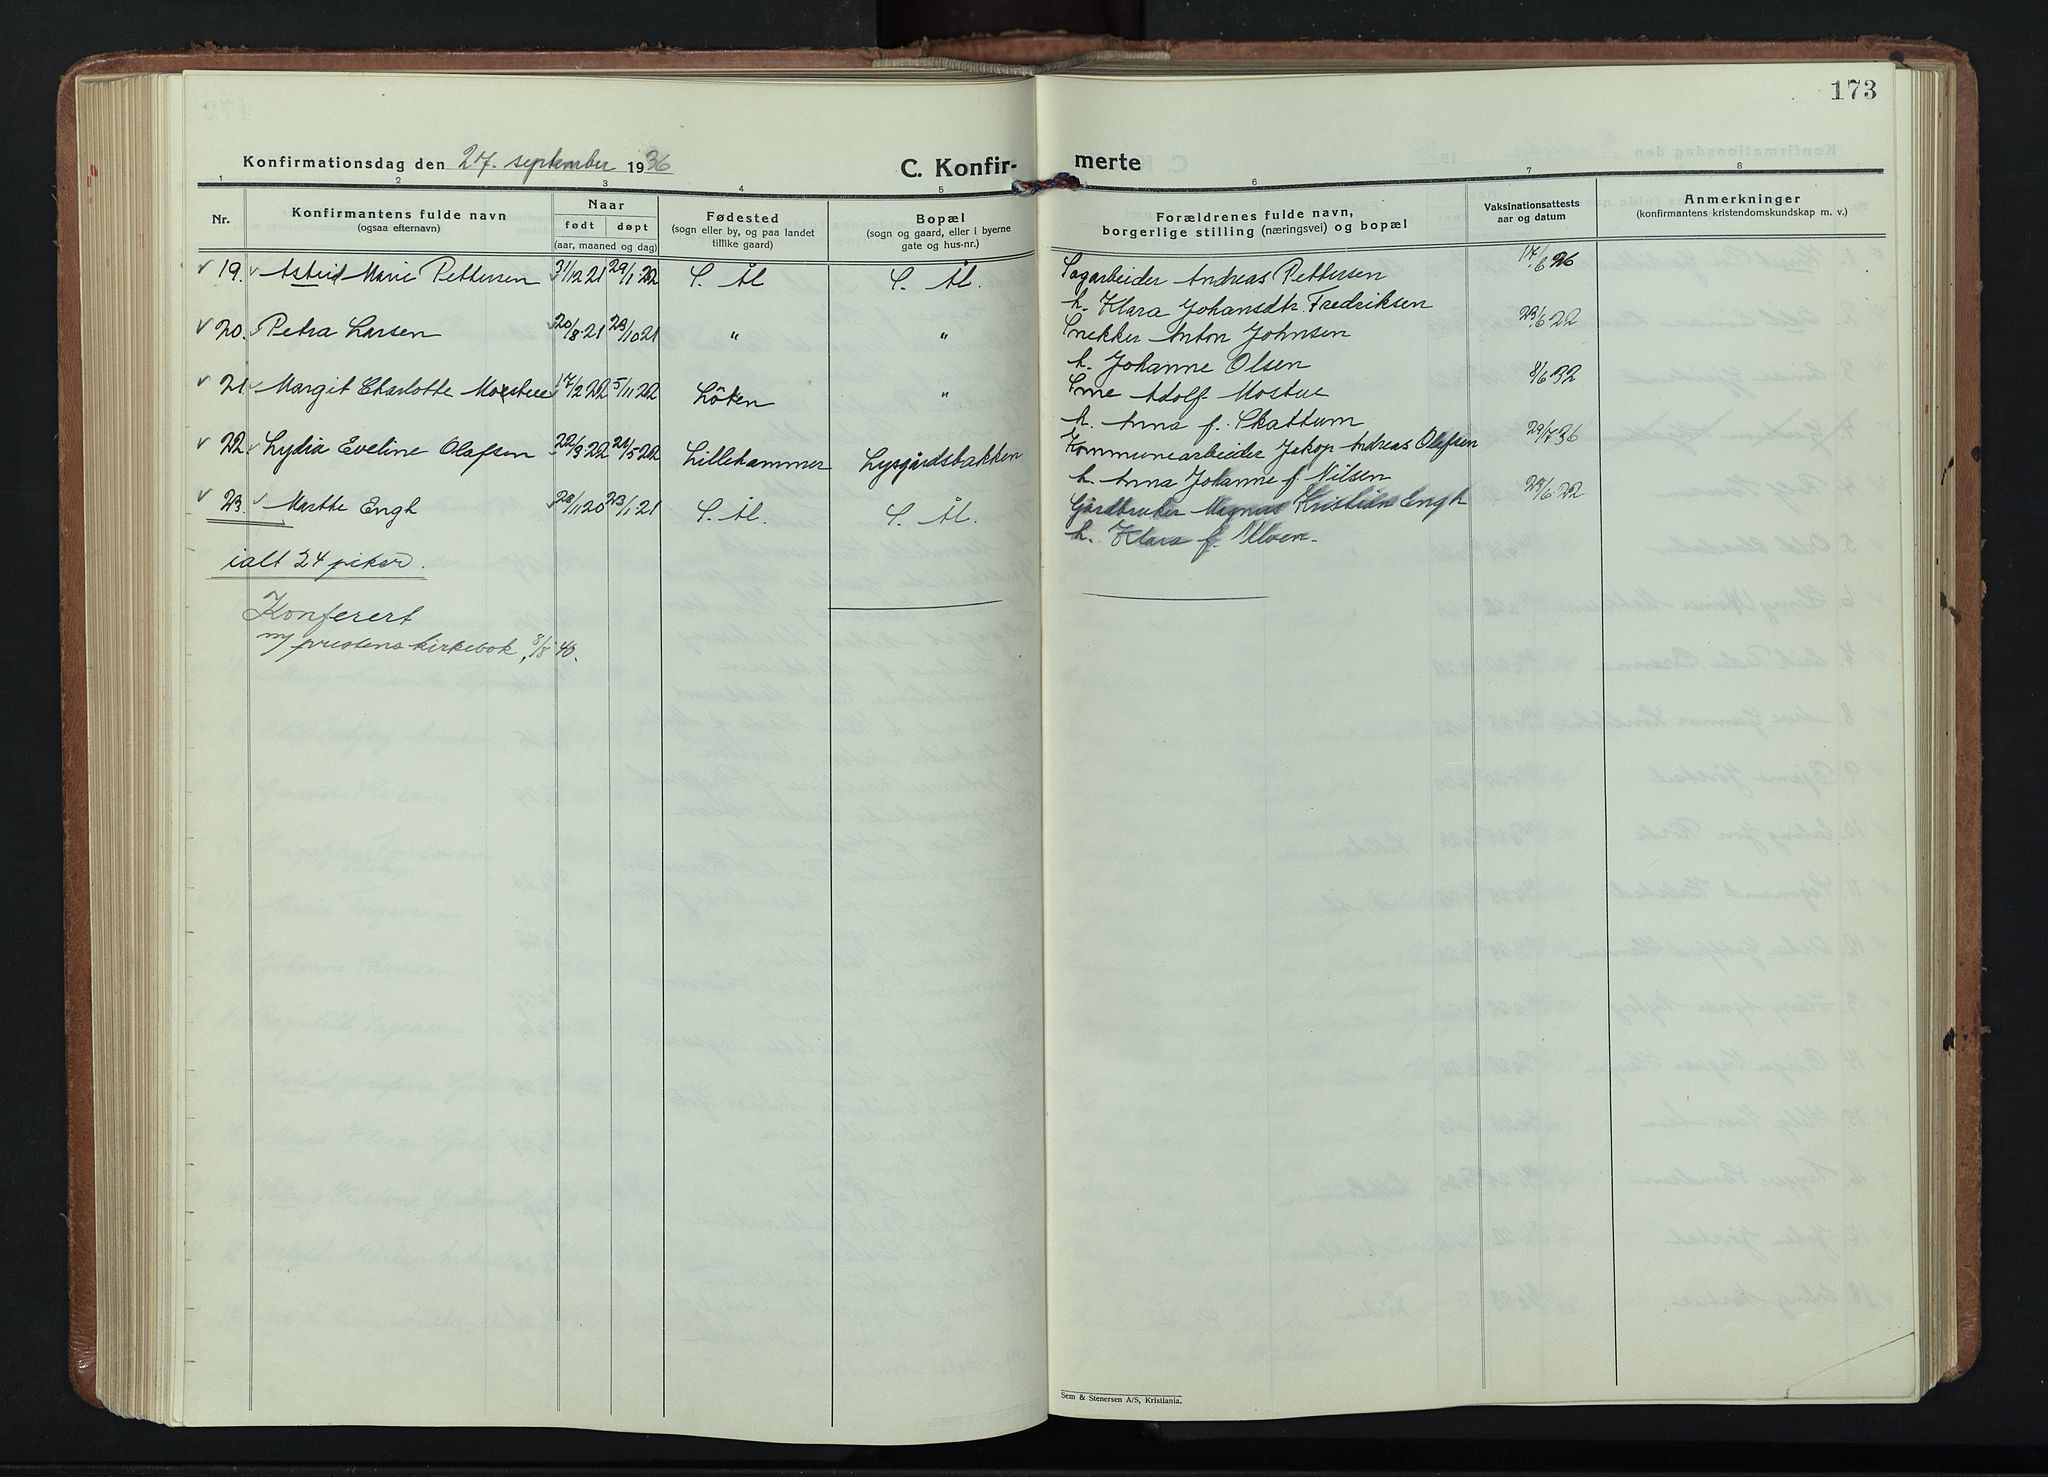 173
Konfirmationsdag den 27. september 1936
C. Konfir- merte
1 2 3 4 5 6 7 8
Nr. Konfirmantens fulde navn (ogsaa efternavn) Naar født døpt (aar, maaned og dag) Fødested (sogn eller by, og paa landet tillike gaard) Bopæl (sogn og gaard, eller i byerne gate og hus-nr.) Forældrenes fulde navn, borgerlige stilling (næringsvei) og bopæl Vaksinationsattests aar og datum Anmerkninger (konfirmantens kristendomskundskap m. v.)
19. Astrid Marie Pettersen 31/12 21 29/1 22 S. Ål S. Ål. Sagarbeider Andreas Pettersen 17/6 26
h. Klara Johansdtr. Fredriksen
20. Petra Larsen 20/8 21 23/10 21 " " Snekker Anton Johnsen 23/6 22
h. Johanne Olsen
21. Margit Charlotte Mostue 17/2 22 5/11 22 Löten " Sme Adolf Mostue 8/6 32
h. Anna f. Skattum
22. Lydia Eveline Olafsen 22/3 22 21/5 22 Lillehammer Lysgårdsbakken Kommunearbeider Jakop Andreas Olafsen 29/7 36
h. Anna Johanne f. Nilsen
23. Marthe Engh 28/11 20 23/1 21 S. Ål. S. Ål. Gårdbruker Magnus Kristian Engh 23/6 22
h. Klara f. Ulven.
ialt 24 piker.
Konferert
m/ prestens kirkebok, 8/8 40.
Sem & Stenersen A/S, Kristiania.